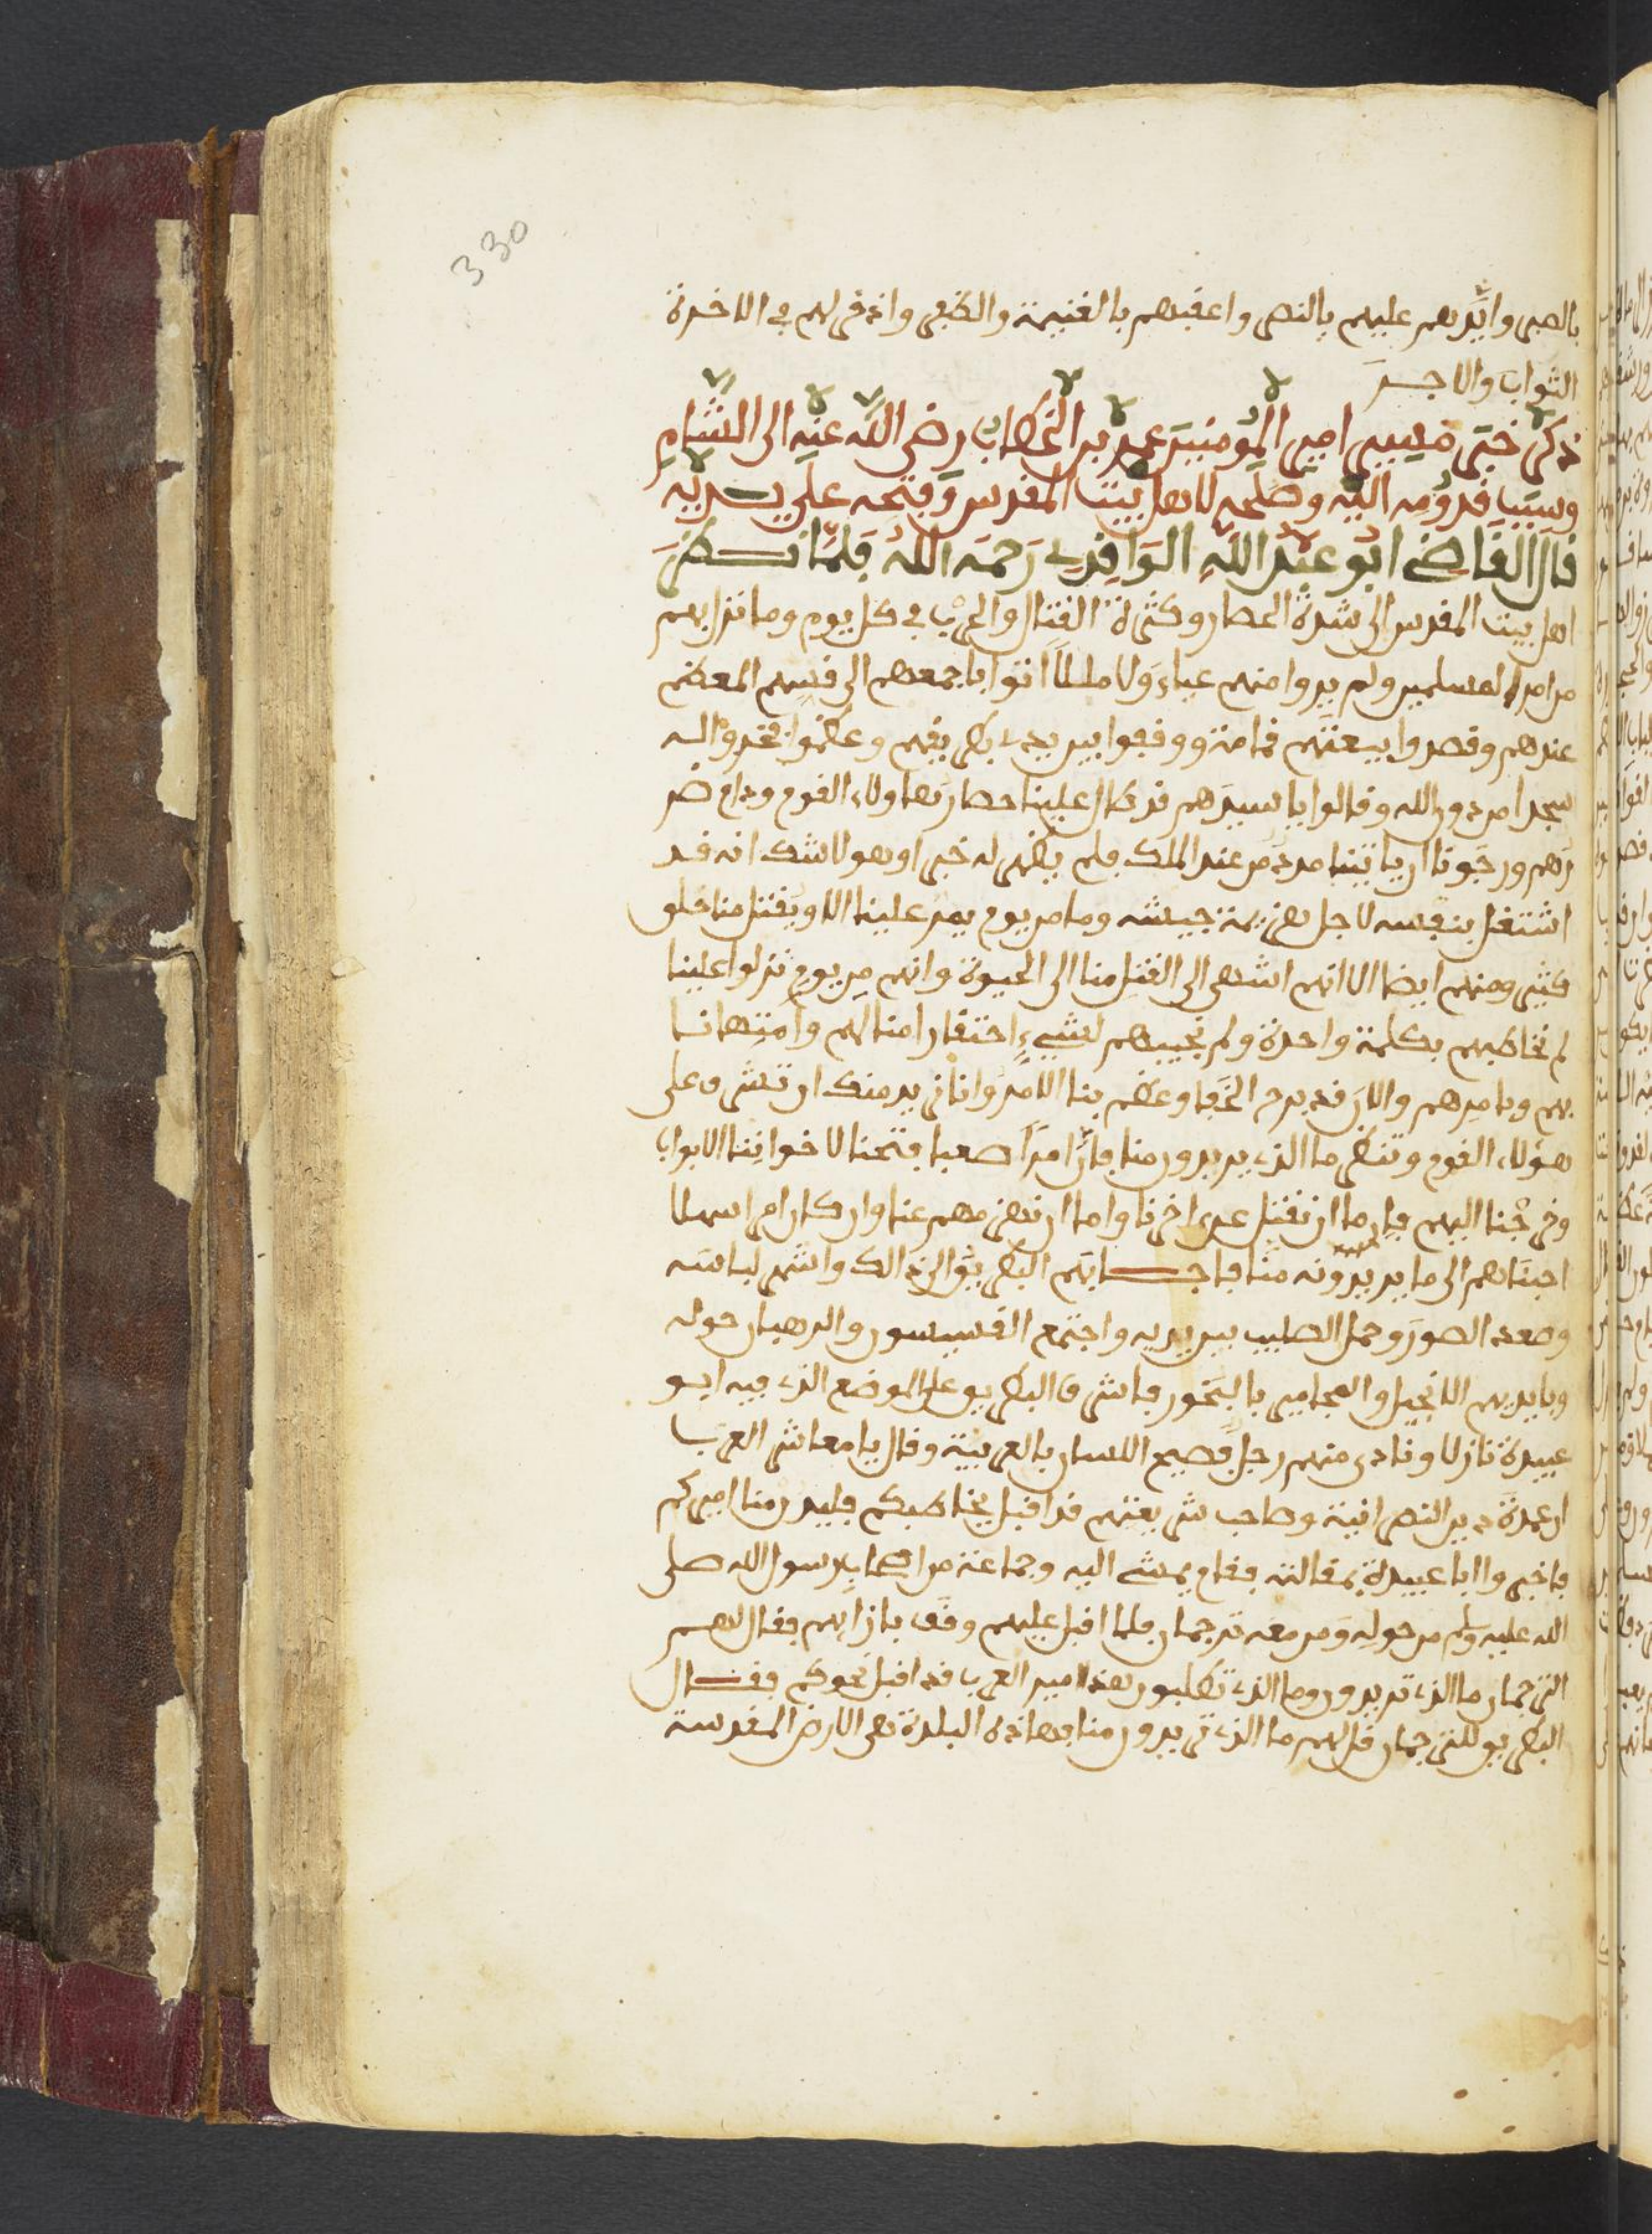 330
بالصبر وايدهم عليهم بالنصر واعقبهم بالغنيمة والظفر واذخر لهم في الاخرة
الثواب والاجر
ذكر خبر مسير امير المؤمنين عمر بن الخطاب رضي الله عنه الى الشام
وسبب قدومه اليه وصلحه لاهل بيت المقدس وفتحه على يديه
قال القاضي ابو عبد الله الواقدي رحمه الله فلما نظر
اهل بيت المقدس الى شدة الحصار وكثرة القتال والحرب في كل يوم وما نزل بهم
من امر المسلمين ولم يروا منهم عياء ولا مللا اتوا باجمعهم الى قسهم المعظم
عندهم وقصدوا بيعتهم قمامة ووقفوا بين يدي بطريقهم وعظموا فخروا له
سجدا من دون الله وقالوا يا سيدهم قد طال علينا حصار هاولاء القوم ودام ضر
رهم ورجونا ان ياتينا مدد من عند الملك فلم يظهر له خبر وهو لا شك انه قد
اشتغل بنفسه لاجل هزيمة جيشه وما من يوم يمر علينا الا ويقتل منا خلق
كثير ومنهم ايضا الا انهم اشهى الى القتل منا الى الحيوة وانهم من يوم نزلوا علينا
لم نخاطبهم بكلمة واحدة ولم نجيبهم لشيء احتقارا منا لهم وامتهانا
بهم وبامرهم والان قد برح الخفا وعظم بنا الامر وانا نريد منك ان تشرف على
هؤلاء القوم وتنظر ما الذي يريدون منا فان امرا صعبا فتحنا لاخواننا الابواب
وخرجنا اليهم فاما ان نقتل عن اخرنا واما ان نهزمهم عنا وان كان امرا سهلا
اجبناهم الى ما يريدونه منا فاجابهم البطريق الى ذالك واشهر لباسه
وصعد الصور وحمل الصليب بين يديه واجتمع القسيسون والرهبان حوله
وبايديهم الانجيل والمجامير بالبخور فاشرف البطريق على الموضع الذي فيه ابو
عبيدة نازلا ونادى منهم رجل فصيح اللسان بالعربية وقال يا معاشر العرب
ان عمدة دين النصرانية وصاحب شريعتهم قد اقبل يخاطبكم فليدن منا اميركم
فاخبروا ابا عبيدة بمقالته فقام يمشي اليه وجماعة من اصحاب رسول الله صلى
الله عليه وسلم من حوله ومن معه ترجمان فلما اقبل عليهم وقف بازايهم فقال لهم
الترجمان ما الذي تريدون وما الذي تطلبون هذا امير العرب قد اقبل نحوكم فقال
البطريق للترجمان قل لهم ما الذي تريدون منا بهاذه البلدة هي الارض المقدسة